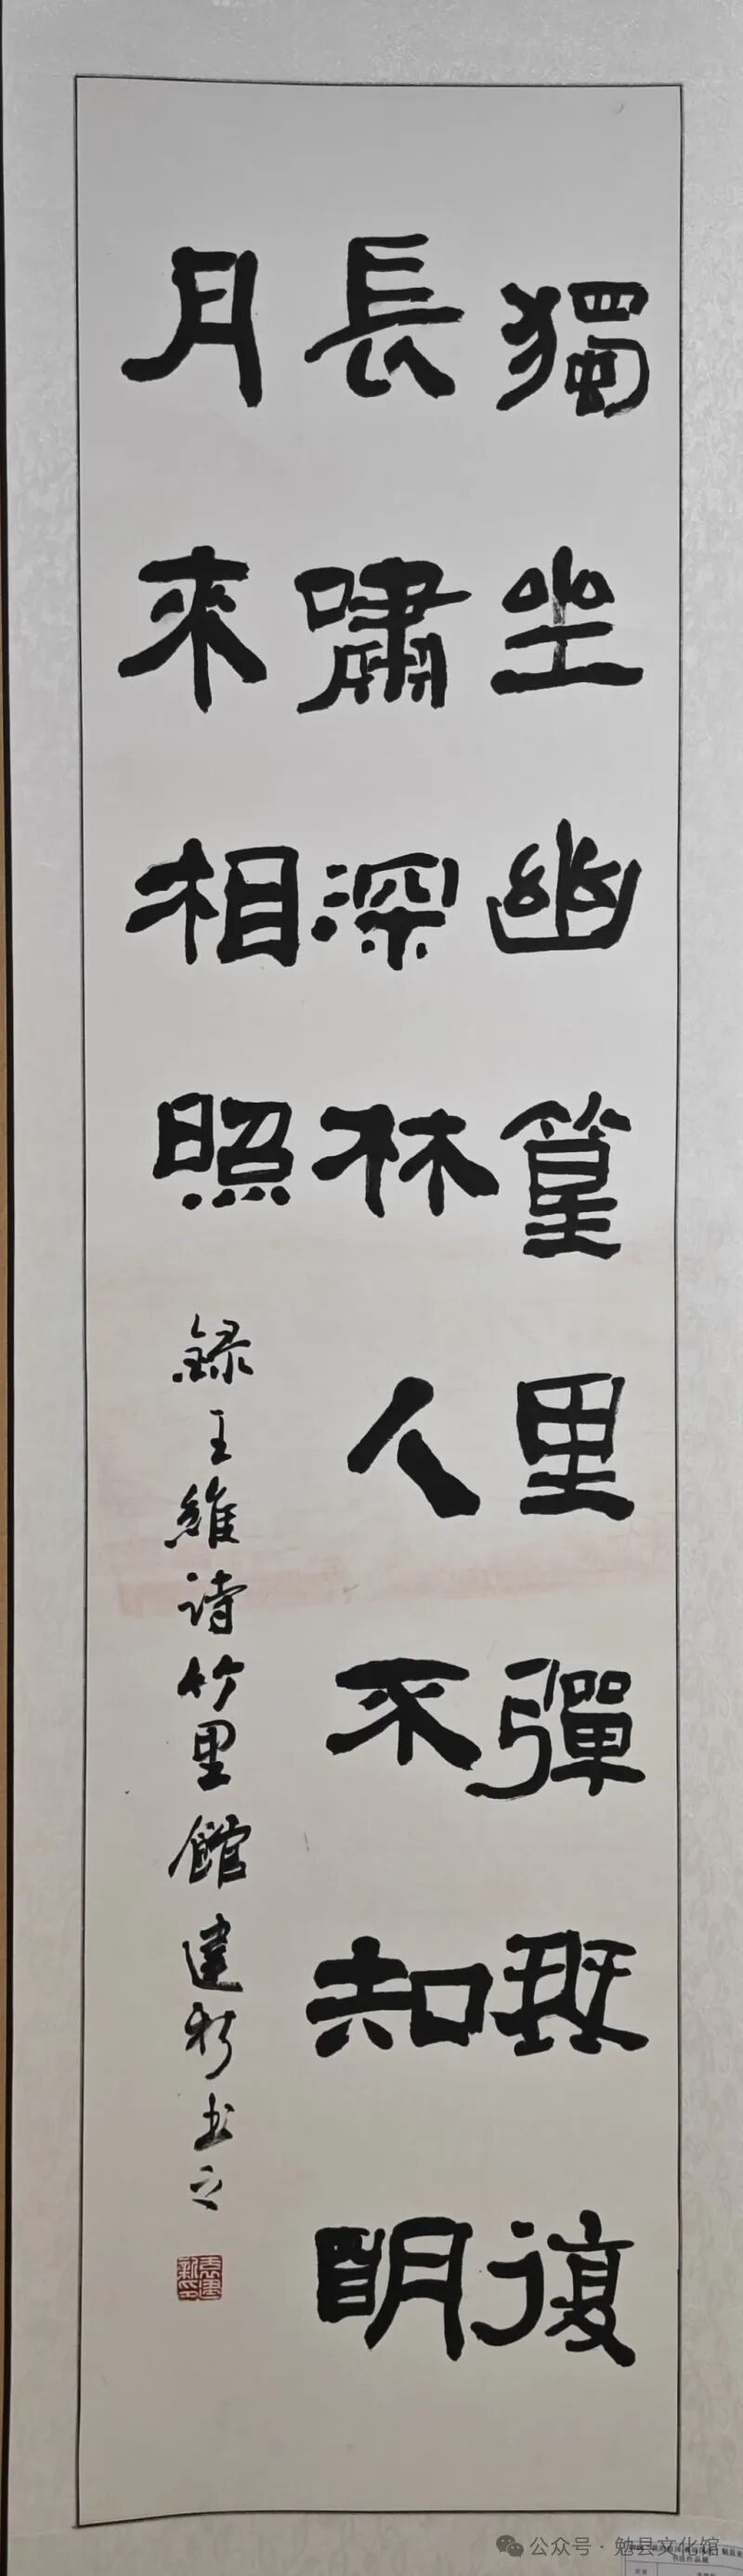 獨坐幽篁里彈琴復
長嘯深林人不知明
月來相照
録王維詩竹里館建新书之
公众号 · 勉县文化馆